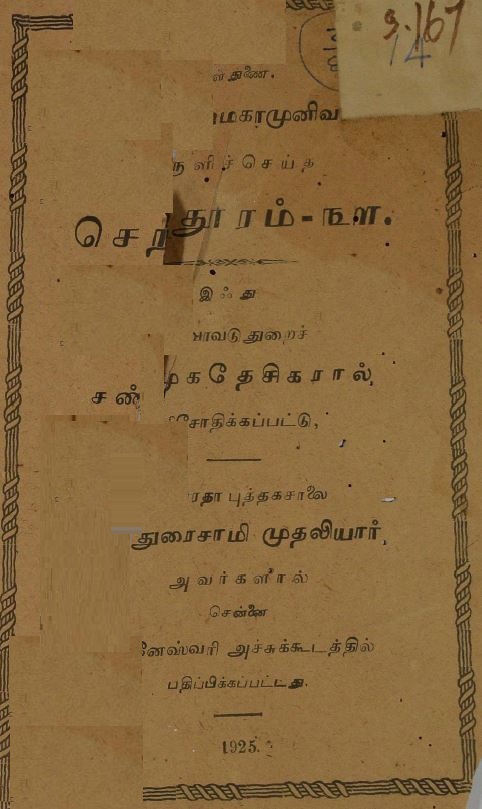 3.167
14
துணை.
மகாமுனிவ
ளிச்செய்த
இஃது
வாவடுதுறைச்
சண்முகதேசிகரால்,
சோதிக்கப்பட்டு,
ரதா புத்தகசாலை
துரைசாமி முதலியார்,
அவர்களால்
சென்னை
னேஸ்வரி அச்சுக்கூடத்தில்
பதிப்பிக்கப்பட்டது.
1925.